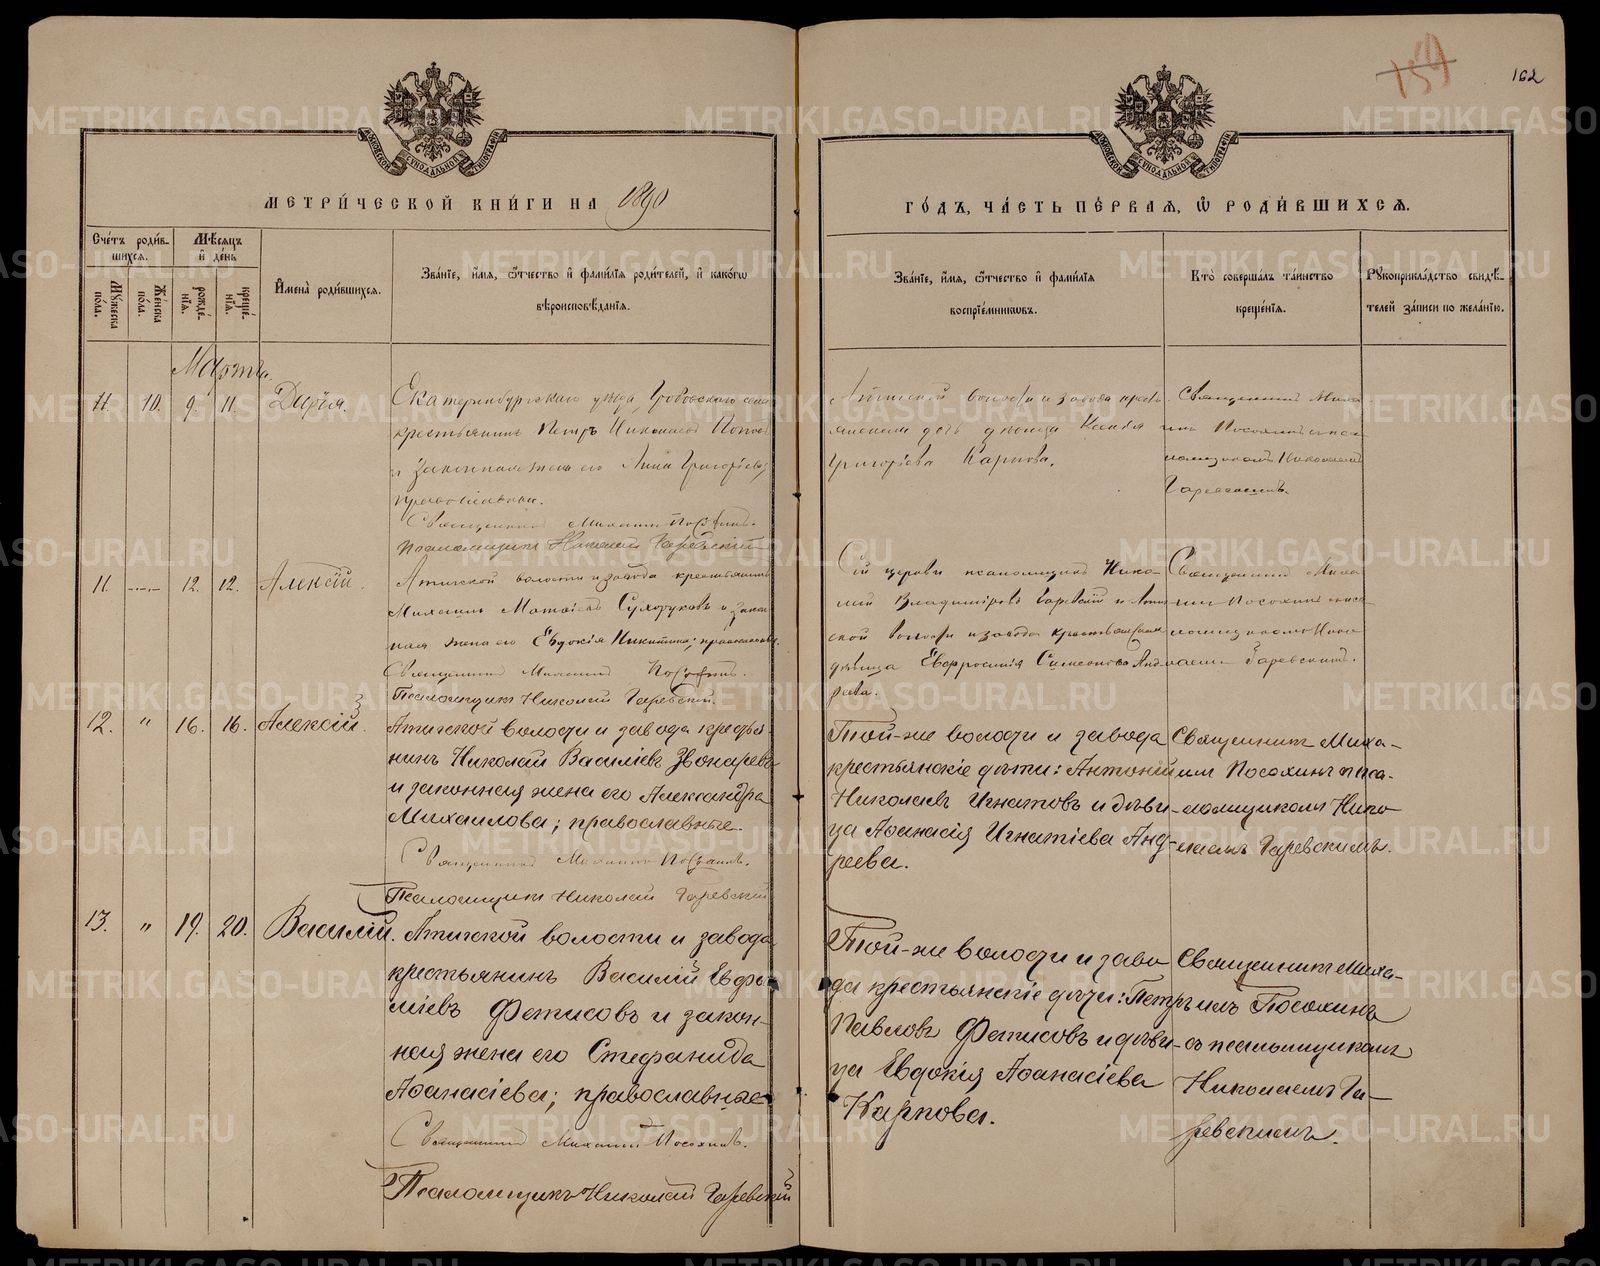 159
162
МЕТРИ́ЧЕСКОЙ КНИ́ГИ НА 1890
ГО́ДЪ, ЧА́СТЬ ПЕ́РВАЯ, Ѿ РОДИ́ВШИХСЯ.
Сче́тъ роди́вшихся.
Мѣ́сяцъ и де́нь
Му́жеска по́ла.
Же́нска по́ла.
рожде́нїя.
креще́нїя.
И҆мена̀ роди́вшихся.
Зва́нїе, и҆́мя, ѻ҆́тчество и҆ фами́лїя роди́телей, и҆ како́гѡ
вѣроисповѣ́данїя.
Зва́нїе, и҆́мя, ѻ҆́тчество и҆ фами́лїя
воспрїе́мниковъ.
Кто̀ соверша́лъ та́инство
креще́нїя.
Рꙋкоприкла́дство свидѣ́-
телей за́писи по жела́нїю.
Марта.
11. 10. 9. 11. Дарія.
Екатеринбургскаго уѣзда, Гробовскаго села
крестьянинъ Петръ Николаевъ Попов
и законная жена его Анна Григорьева;
православные.
Священникъ Михаилъ Посохинъ.
Псаломщикъ Николай Гаревскій
Атигской волости и завода кресть
янская дочь дѣвица Ксенія
Григорьева Карпова.
Священникъ Миха
илъ Посохинъ съ пса
ломщикомъ Николаемъ
Гаревскимъ.
11. 12. 12. Алексій.
Атигской волости и завода крестьянинъ
Михаилъ Матвіевъ Сухоруковъ и закон
ная жена его Евдокія Никитина; православные
Священникъ Михаилъ Посохинъ.
Псаломщикъ Николай Гаревскій.
Сей церкви псаломщикъ Нико-
лай Владиміровъ Гаревскій и Атиг
ской волости и завода крестьянская
дѣвица Евфросинія Симеонова Анд
реева.
Священникъ Миха
илъ Посохинъ съ пса-
ломщикомъ Нико
лаемъ Гаревскимъ.
12. " 16. 16. Алексій.
Атигской волости и завода крестья
нинъ Николай Василіевъ Звонаревъ
и законная жена его Александра
Михаилова; православные.
Священникъ Михаилъ Посохинъ.
Псаломщикъ Николай Гаревскій
Той-же волости и завода
крестьянскіе дѣти: Антоній
Николаевъ Игнатовъ и дѣви-
ца Аѳанасія Игнатіева Анд-
реева.
Священникъ Миха-
илъ Посохинъ съ пса-
ломщикомъ Нико
лаемъ Гаревскимъ.
13. " 19. 20. Василій.
Атигской волости и завода
крестьянинъ Василій Евфи
міевъ Фетисовъ и закон-
ная жена его Стефанида
Аѳанасіева; православные
Священникъ Михаилъ Посохинъ.
Псаломщикъ Николай Гаревскій
Той-же волости и заво
да крестьянскіе дѣти: Петръ
Павловъ Фетисовъ и дѣви-
ца Евдокія Аѳанасіева
Карпова.
Священникъ Миха-
илъ Посохинъ
съ псаломщикомъ
Николаемъ Га-
ревскимъ.
METRIKI.GASO-URAL.RU